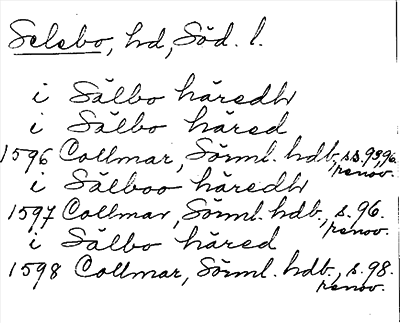 Selebo, hd, Söd. l.
i Sälbo häredh
i Sälbo häred
1596 Collmar, Sörml. hdb., ss. 93, 96. renov.
i Sälboo häredh
1597 Collmar, Sörml. hdb., s. 96. renov.
i Sälbo häred
1598 Collmar, Sörml. hdb., s. 98. renov.